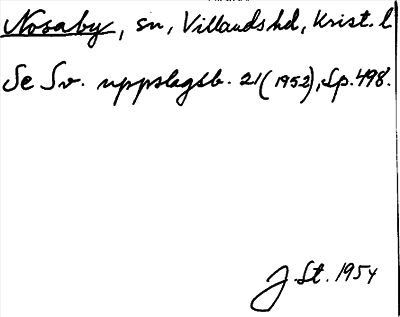 Nosaby, sn, Villands hd, Krist. l
Se Sv. uppslagsb. 21 (1952), Sp. 498.
J. St. 1954